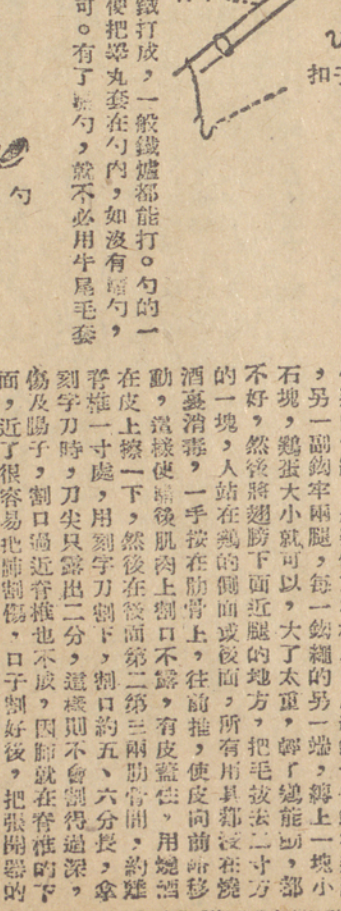 扣子
鐵打成，一般鐵爐都能打。勺的一
便把睪丸套在勺內，如沒有睪勺，
可。有了睪勺，就不必用牛尾毛套
勺
，另一副鈎牢兩腿，每一鈎繩的另一端，縛上一塊小
石塊，鷄蛋大小就可以，大了太重，輕了鷄能動，都
不好，然後將翅膀下面近腿的地方，把毛拔去二寸方
的一塊，人站在鷄的側面或後面，所有用具都浸在燒
酒裏消毒，一手按在肋骨上，往前推，使皮向前略移
動，這樣使睪後肌肉上割口不露，有皮蓋住，用燒酒
在皮上擦一下，然後在後面第二第三兩肋骨間，約離
脊椎一寸處，用刻字刀割下，割口約五、六分長，拿
刻字刀時，刀尖只露出二分，這樣則不會割得過深，
傷及腸子，割口過近脊椎也不成，因肺就在脊椎的下
面，近了很容易把肺割傷，口子割好後，把張開器的